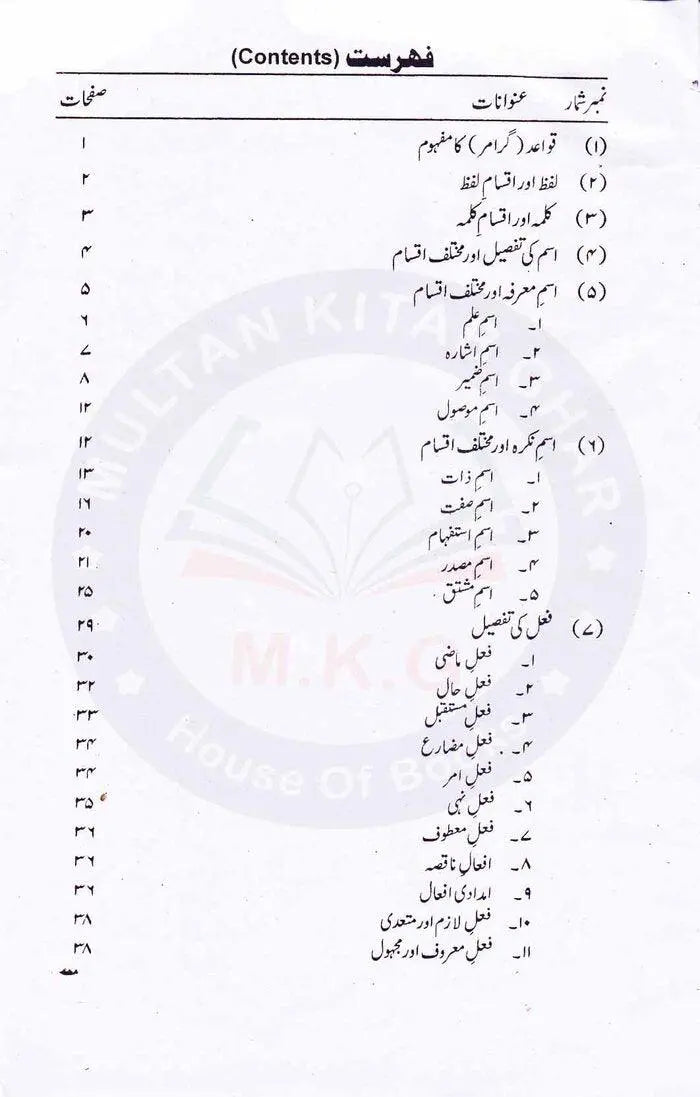 فہرست (Contents)
نمبر شمار عنوانات صفحات
(۱) قواعد (گرامر) کا مفہوم ۱
(۲) لفظ اور اقسامِ لفظ ۲
(۳) کلمہ اور اقسامِ کلمہ ۳
(۴) اسم کی تفصیل اور مختلف اقسام ۴
(۵) اسمِ معرفہ اور مختلف اقسام ۵
۱۔ اسمِ علم ۶
۲۔ اسمِ اشارہ ۷
۳۔ اسمِ ضمیر ۸
۴۔ اسمِ موصول ۱۲
(۶) اسمِ نکرہ اور مختلف اقسام ۱۲
۱۔ اسمِ ذات ۱۳
۲۔ اسمِ صفت ۱۶
۳۔ اسمِ استفہام ۲۰
۴۔ اسمِ مصدر ۲۱
۵۔ اسمِ مشتق ۲۵
(۷) فعل کی تفصیل ۲۹
۱۔ فعلِ ماضی ۳۰
۲۔ فعلِ حال ۳۲
۳۔ فعلِ مستقبل ۳۳
۴۔ فعلِ مضارع ۳۴
۵۔ فعلِ امر ۳۴
۶۔ فعلِ نہی ۳۵
۷۔ فعلِ معطوف ۳۶
۸۔ افعالِ ناقصہ ۳۶
۹۔ امدادی افعال ۳۶
۱۰۔ فعلِ لازم اور متعدی ۳۸
۱۱۔ فعلِ معروف اور مجہول ۳۸
MULTAN KITAB GHAR
M.K.G
House Of Books